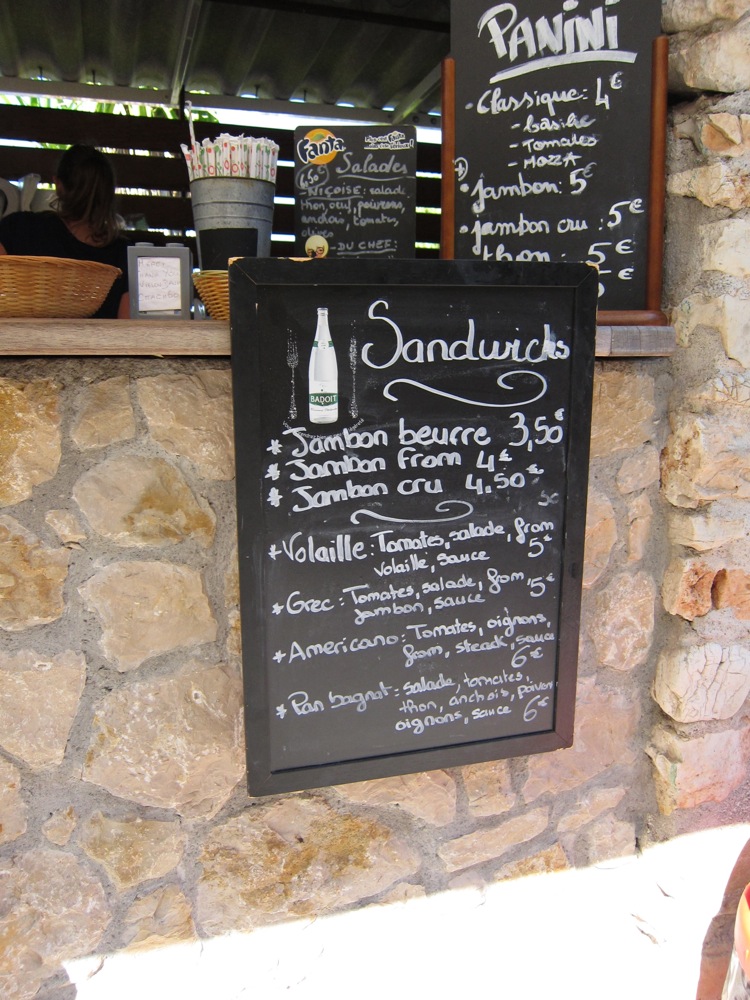 PANINI
• Classique: 4€
- Basilic
- Tomates
- MOZZA
• jambon: 5€
• jambon cru: 5€
thon: 5€
€
Fanta
Salades
- NIÇOISE: salade
thon, oeuf, poivrons,
anchois, tomates,
olives
- DU CHEF:
Sandwichs
BADOIT
* Jambon beurre 3,50€
* Jambon from 4€
* Jambon cru 4.50€
* Volaille: Tomates, salade, from
volaille, sauce 5€
* Grec: Tomates, salade, from,
jambon, sauce 5€
* Americano: Tomates, oignons,
from, steack, sauce
6€
* Pan bagnat: salade, tomates,
thon, anchois, poivron,
oignons, sauce 6€